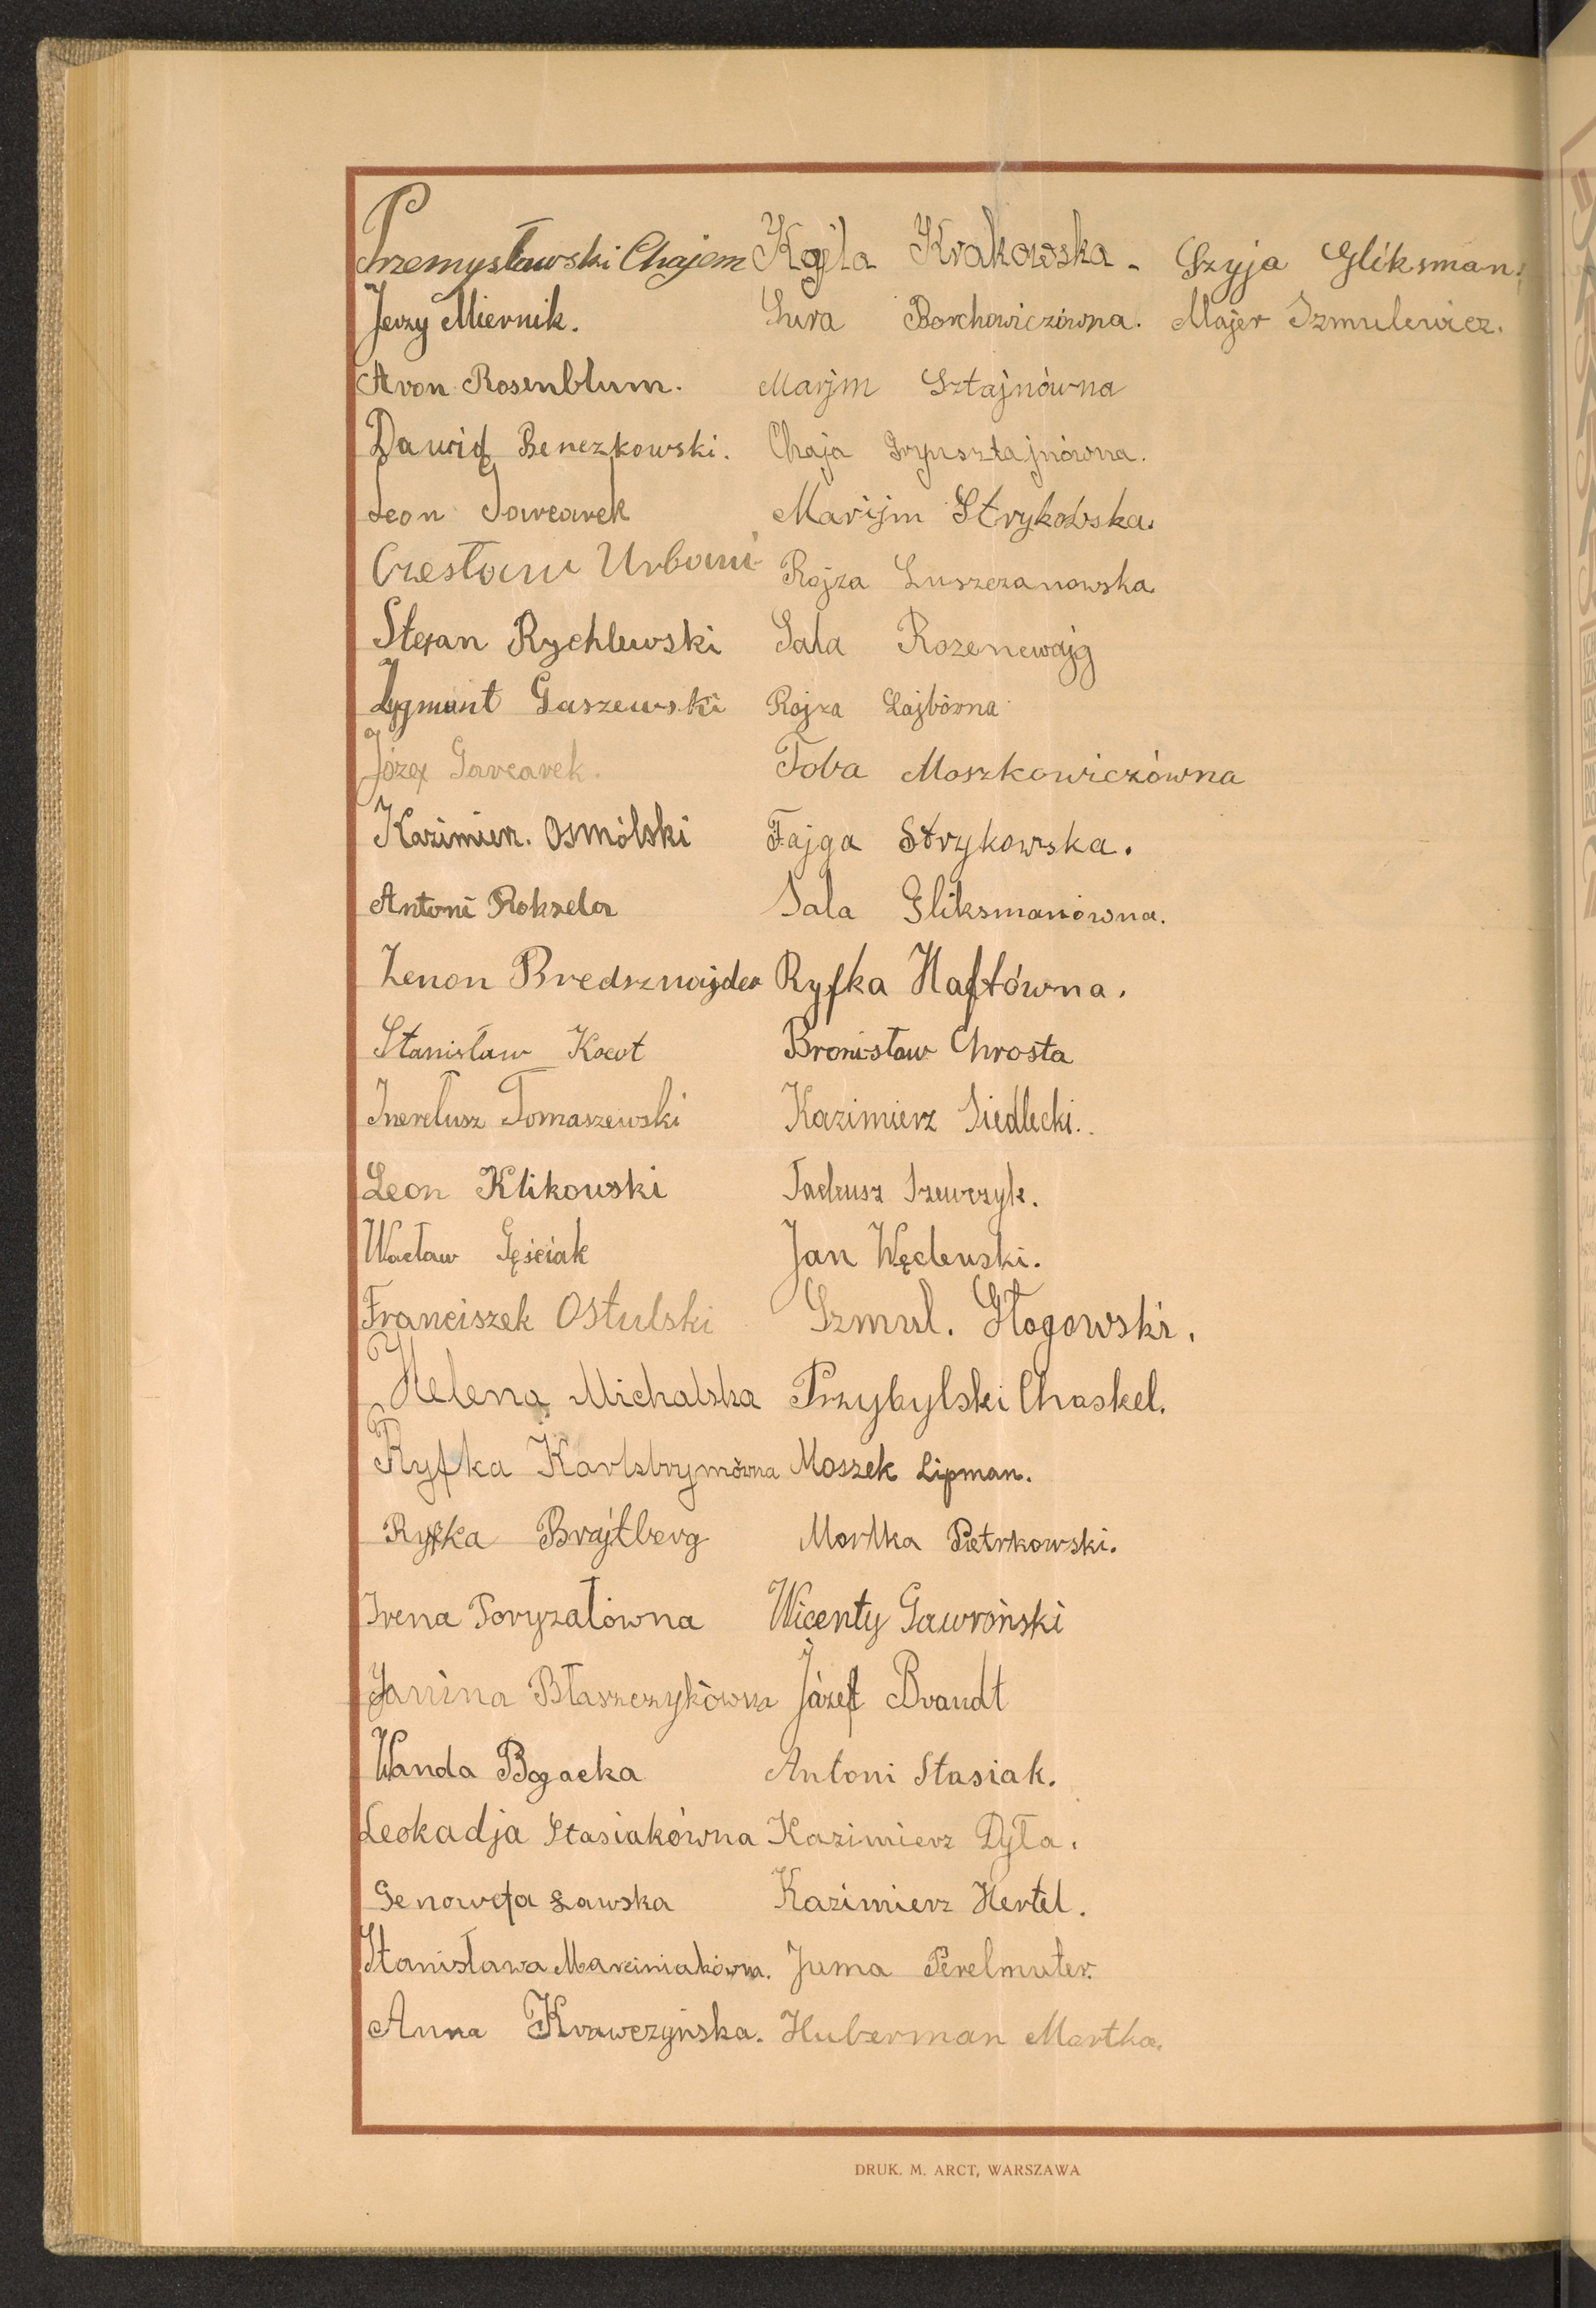 Przemysławski Chajem Kajla Krakowska - Szyja Gliksman.
Jerzy Miernik. Sura Borchowiczówna. Majer Szmulewicz.
Aron Rosenblum. Marjm Sztajnówna
Dawid Benczkowski. Chaja Grynsztajnówna.
Leon Garcarek Marijm Strykowska.
Czesław Urbani Rojza Luszczanowska
Stefan Rychlewski Sala Rozencwajg
Zygmunt Gaszewski Rojza Lajbówna
Józef Garcarek. Toba Moszkowiczówna
Kazimierz. Osmólski Fajga Strykowska.
Antoni Sala Gliksmanówna.
Zenon Bredsznajder Ryfka Haftówna.
Stanisław Kocot Bronisław Chrosta
Ireneusz Tomaszewski Kazimierz Siedlecki.
Leon Klikowski Tadeusz Szewczyk.
Wacław Gęsiak Jan Węclewski.
Franciszek Ostulski Szmul. Głogowski.
Helena Michalska Przybylski Chaskel.
Ryfka Moszek Lipman.
Ryfka Brajtberg Mortka Pietrkowski.
Irena Poryzałówna Wicenty Gawroński
Janina Błaszczykówna Józef Brandt
Wanda Bogacka Antoni Stasiak.
Leokadja Stasiakówna Kazimierz Dyła.
Genowefa Ławska Kazimierz Hertel.
Stanisława Marciniakówna. Juma Perelmuter.
Anna Krawczyńska. Huberman Mortka.
DRUK. M. ARCT, WARSZAWA